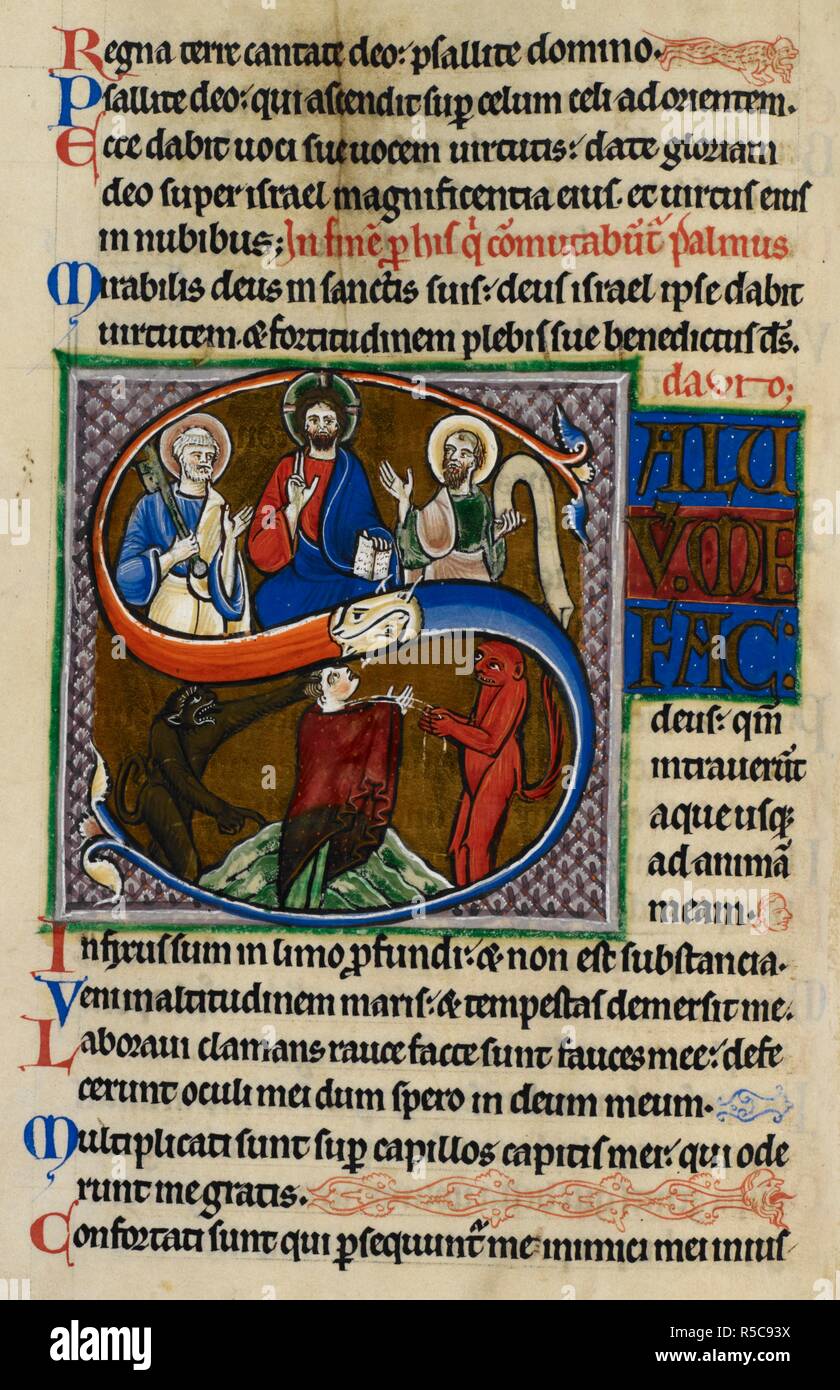 Regna terre cantate deo: psallite domino.
Psallite deo: qui ascendit suꝑ celum celi ad orientem.
Ecce dabit uoci sue uocem uirtutis: date gloriam
deo super israel magnificentia eius. et uirtus eius
in nubibus; In finē ꝓ his q̇ cōmutabūt᷑ psalmus
Mirabilis deus in sanctis suis: deus israel ipse dabit
uirtutem. & fortitudinem plebis sue benedictus d̄s.
dauid;
SALVUM ME FAC:
deus: qm̄
intrauerūt
aque usq;
ad animā
meam.
Infixus sum in limo ꝓfundi: & non est substancia.
Veni in altitudinem maris: & tempestas demersit me.
Laboraui clamans rauce facte sunt fauces mee: defe
cerunt oculi mei dum spero in deum meum.
Multiplicati sunt suꝑ capillos capitis mei: qui ode
runt me gratis.
Confortati sunt qui ꝑsequunt᷑ me inimici mei inius
alamy
Image ID: R5C93X
www.alamy.com